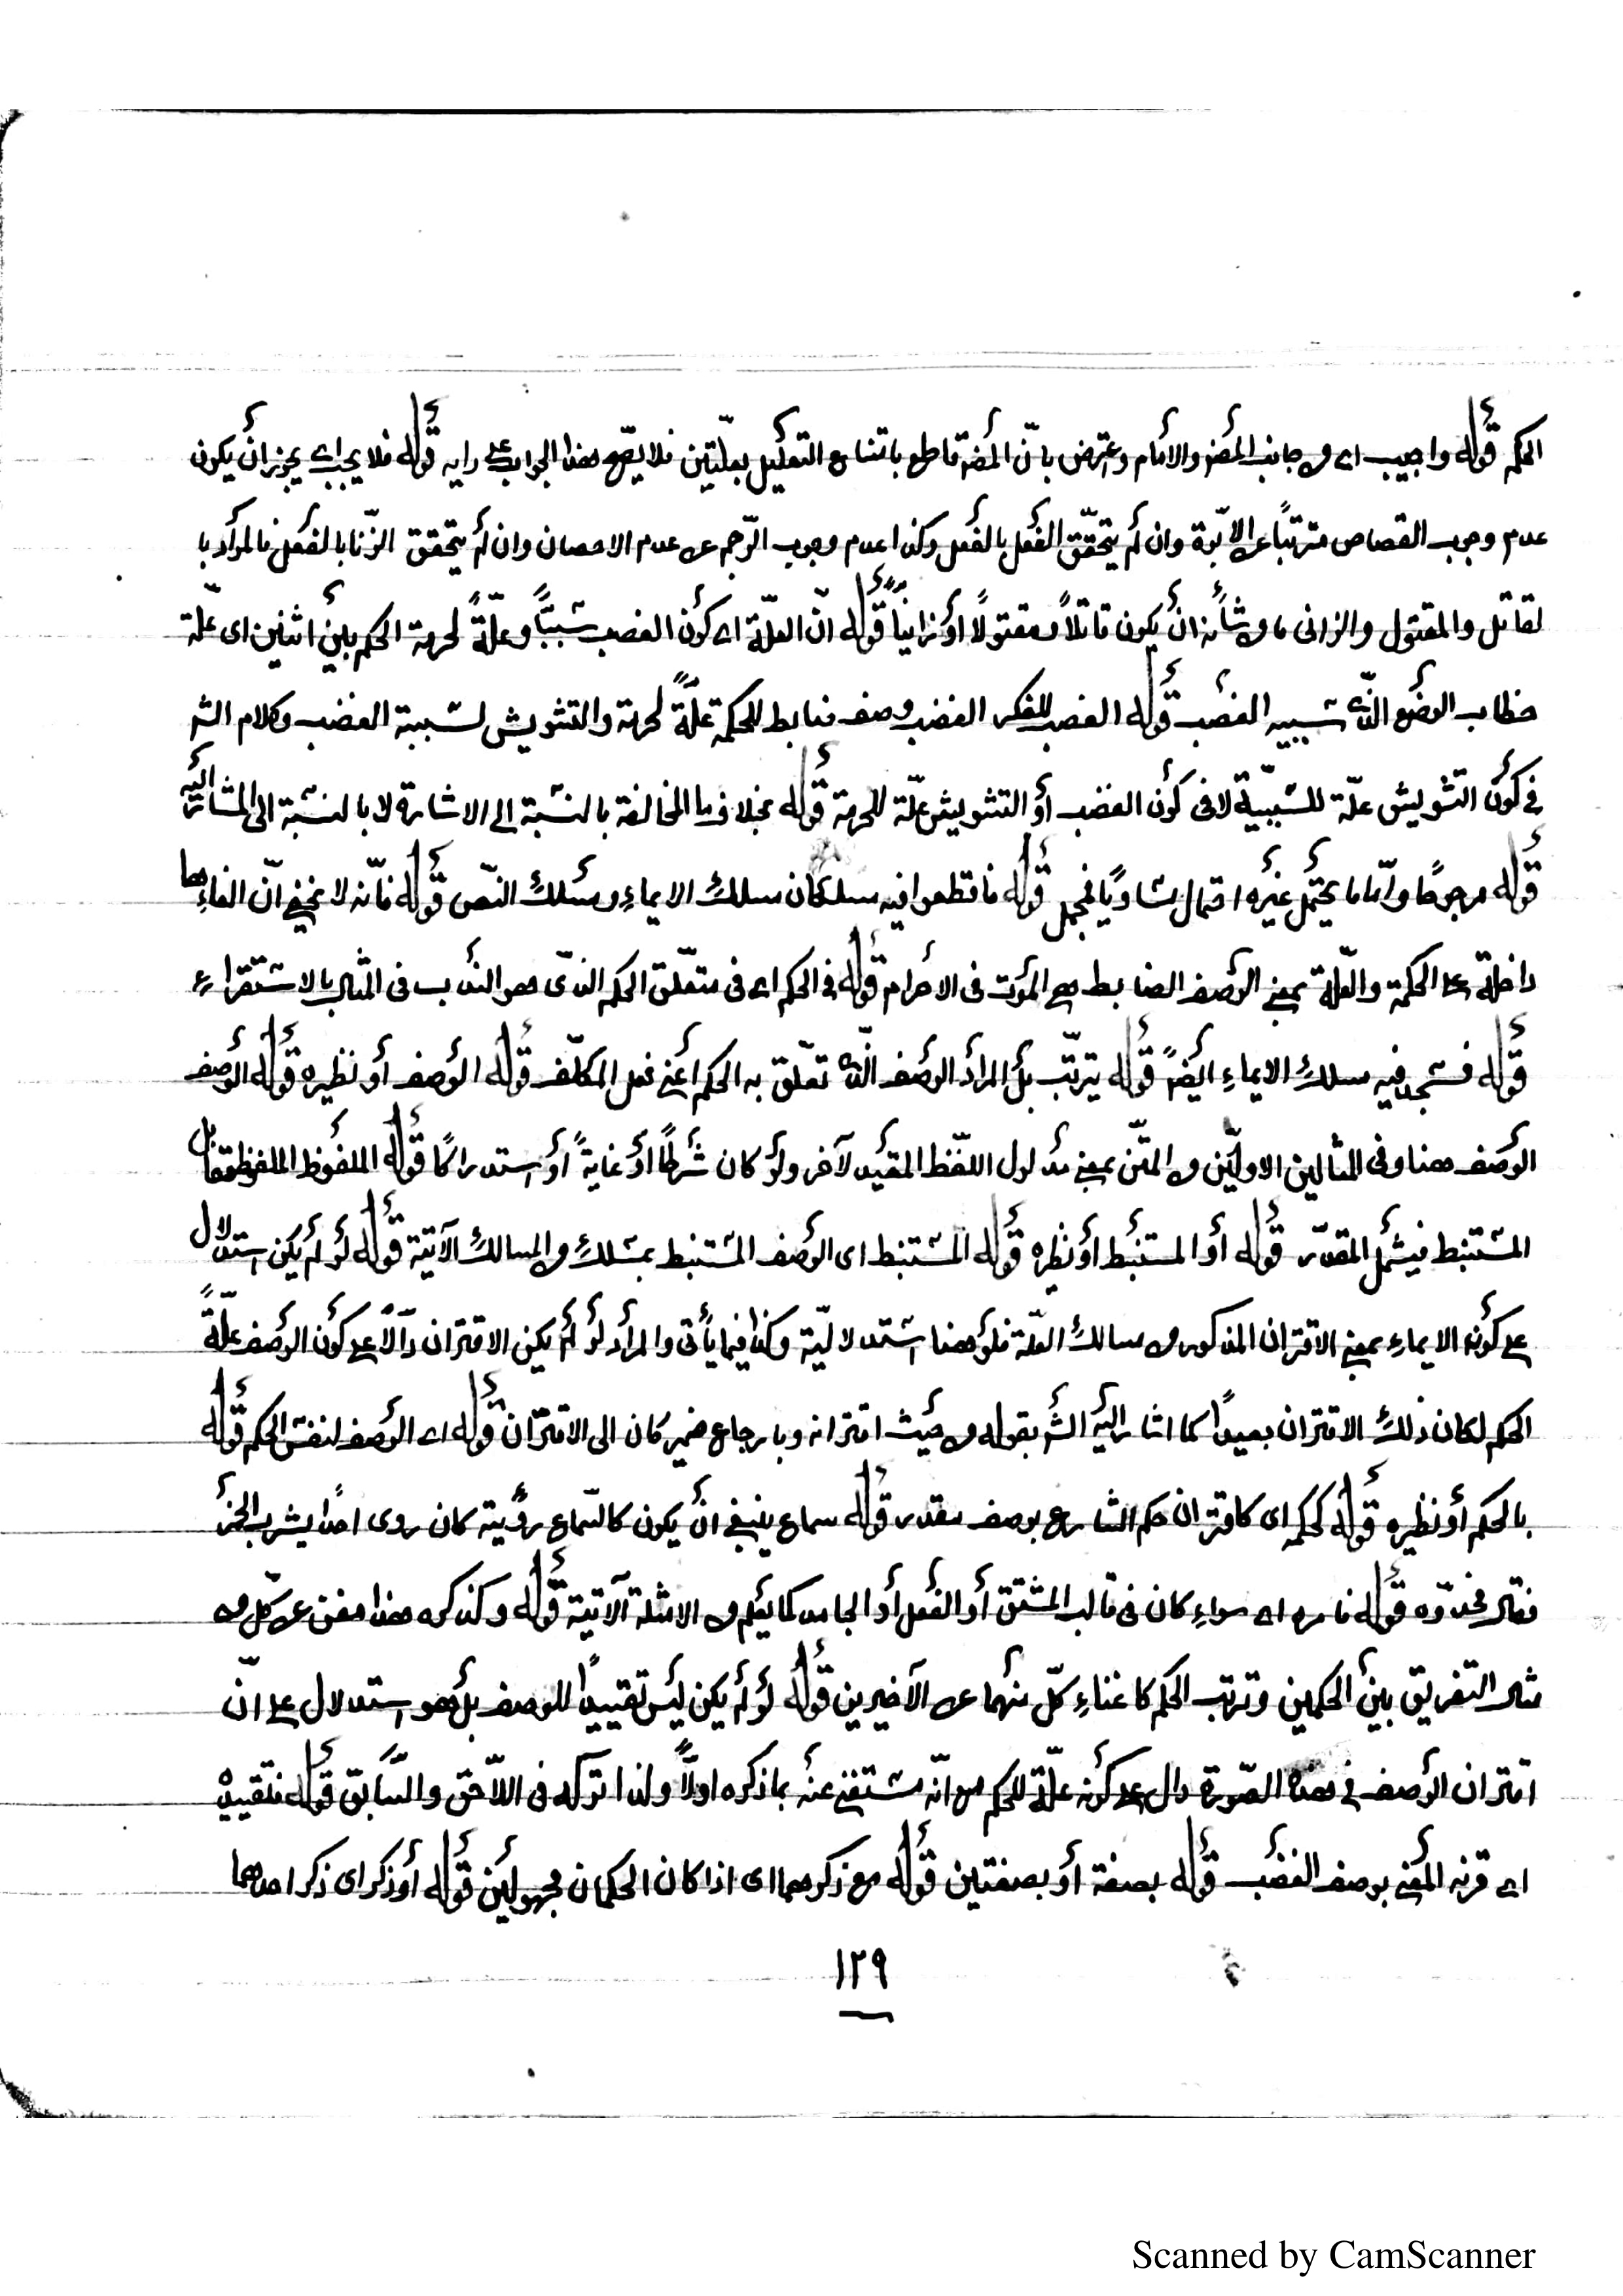 الحكم قوله واجيب اى من جانب المص والامام واعترض بانّ المص قاطع بامتناع التعليل بعلّتين فلا يصّح هذا الجواب على رايه قوله فلا يجب اى يجوز ان يكون
عدم وجوب القصاص مترتبًا على الابوّة وان لم يتحقّق القتل بالفعل وكذا عدم وجوب الرّجم على عدم الاحصان وان لم يتحقق الزّنا بالفعل فالمراد با
لقاتل والمقتول والزانى ما من شأنه ان يكون قاتلاً ومقتولاً او زانياً قوله انّ العلّة اى كون الغضب سببًا وعلّةً لحرمة الحكم بين اثنين اى علّة
خطاب الوضع الذى سببيه الغضب قوله الغضب للفكر الغضب وصف ضابط للحكمة علّةً لحرمة والتشويش لسببية الغضب وكلام الشر
فى كون التشويش علّة للسّببيّة لا فى كون الغضب أو التشويش علّة للحرمة قوله بخلاف ما المخالفة بالنسبة الى الاشارة لا بالنسبة الى المشار اليه
قوله مرجوحًا وامّا ما يحتمل غيره احتمال متساويًا فمجمل قوله فاقطعوا فيه مسلكان مسلك الايماءِ ومسلك النّص قوله فانّه لا يخفى انّ الفاءِ هنا
داخلة على الحكمة والعلّة بمعنى الوصف الضابط هى الموت فى الاحرام قوله فى الحكم اى فى متعلّق الحكم الذى هو الندب فى المثال بالاستقراءِ
قوله فسجد فيه مسلك الايماءِ ايضً قوله يترتّب بل المراد الوصف الّذى تعلّق به الحكم أعنى فعل المكلّف قوله الوصف أو نظيره قوله الوصف
الوصف هنا وفى المثالين الاوليّين من المتّن بمعنى مدلول اللفظ المقيد لآخر ولو كان شرطًا أو غايةً أو استدراكًا قوله الملفوظ الملفوظ مقابل
المستنبط فيشمل المقدّر قوله أو المستنبط أو نظيره قوله المستنبط اى الوصف المستنبط بمسلك من المسالك الآتية قوله لو لم يكن استدلال
على كونه الايماءِ بمعنى الاقتران المذكور من مسالك العلّة فلو هنا استدلاليّة وكذا فيما يأتى والمراد لو لم يكن الاقتران دآلّاً على كون الوصف علّةً
الحكم لكان ذلك الاقتران بعيداً كما اشار اليه الشر بقوله من حيث اقترانه وبارجاع ضمير كان الى الاقتران قوله اى الوصف لنفس الحكم قوله
بالحكم أو نظيره قوله كحكمه اى كاقتران حكم الشارع بوصف مقدر قوله سماع ينبغى ان يكون كالسّماع رؤية كان روى احدًا يشرب الخمر
فقال فحدّوه قوله فامره اى سواءِ كان فى قالب المشتق أو الفعل أو الجامد كما يعلم من الامثلة الآتية قوله وكذكره هذا مغن عن كلّ من
مثال التفريق بين الحكمين وترتب الحكم كاغناءِ كلّ منهما عن الآخيرين قوله لو لم يكن ليس تقييدًا للوصف بل هو استدلال على انّ
اقتران الوصف فى هذه الصّورة دال على كونه علّة للحكم مع انّه مستغنى عنه بما ذكره اولاً ولذا تركه فى اللآحق والسّابق قوله فتقييده
اى قرنه المنع بوصف الغضب قوله بصفة أو بصفتين قوله مع ذكرهما اى اذا كان الحكمان مجهولين قوله أو ذكر اى ذكر احدهما
١٢٩
Scanned by CamScanner